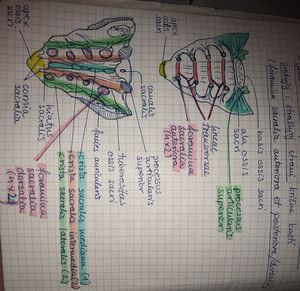 prednju stražnju stranu križne kosti
(foramina sacralia anteriora et posteriora/dorsalia)
basis ossis sacri
ala ossis sacri
processus articularis superior
foramina sacralia anteriora (4x2)
lineae transversae
apex ossis sacri
canalis sacralis
processus articularis superior
tuberositas ossis sacri
facies auricularis
crista sacralis mediana (1)
crista sacralis intermedia (2)
crista sacralis lateralis (2)
foramina sacralia dorsalia (4x2)
hiatus sacralis
cornua sacralia
apex ossis sacri